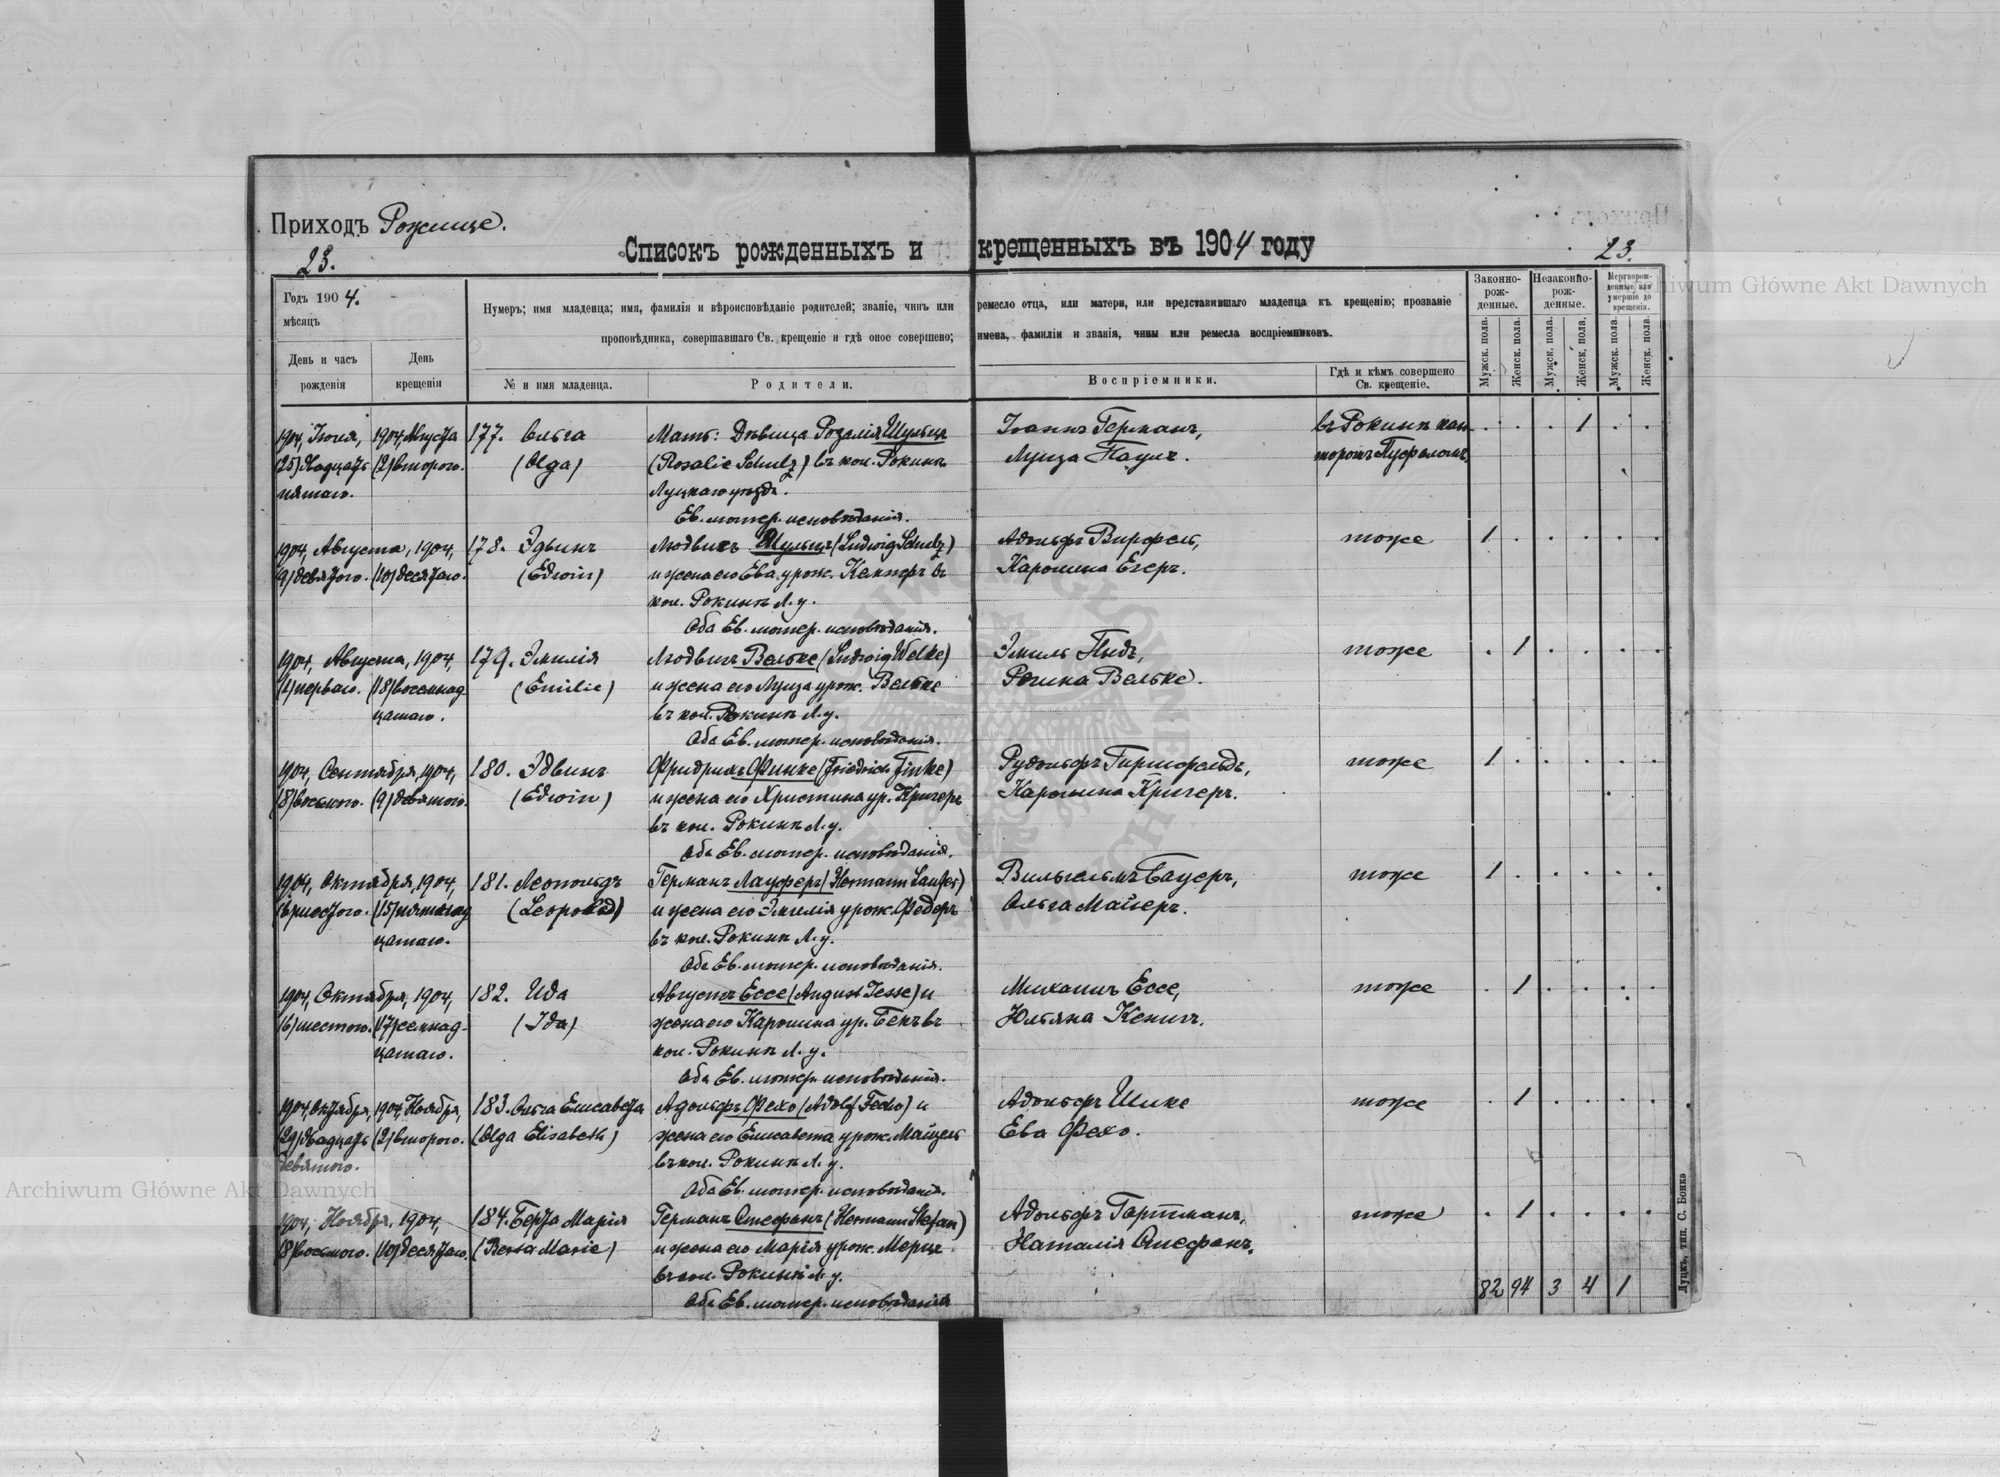 Приходъ Рожище.
23.
Списокъ рожденныхъ и крещенныхъ въ 1904 году
23.
Годъ 1904.
мѣсяцъ
День и часъ рожденія
День крещенія
Нумеръ; имя младенца; имя, фамилія и вѣроисповѣданіе родителей; званіе, чинъ или ремесло отца, или матери, или представившаго младенца къ крещенію; прозваніе
проповѣдника, совершавшаго Св. крещеніе и гдѣ оное совершено; имена, фамиліи и званія, чины или ремесла воспріемниковъ.
№ и имя младенца.
Родители.
Воспріемники.
Гдѣ и кѣмъ совершено Св. крещеніе.
Законно-рожденные.
Незаконно-рожденные.
Мертворожденные или умершіе до крещенія.
Мужск. пола.
Женск. пола.
Мужск. пола.
Женск. пола.
Мужск. пола.
Женск. пола.
1904, Іюля, 1904 Августа 177. Ольга Мать: Дѣвица Розалія Шульцъ Іоаннъ Германъ, въ Рокинѣ кан- 1
(25) двадцать (2) второго. (Olga) (Rosalie Schulz) въ кол. Рокинѣ Луиза Паулъ. торомъ
пятаго. Луцкаго уѣзда.
Ев. лютер. исповѣданія.
1904, Августа, 1904, 178. Эдвинъ Людвигъ Шульцъ (Ludwig Schulz) Адольфъ тоже 1
(9) девятого. (10) десятаго. (Edwin) и жена его Ева урож. въ Каролина Егеръ.
кол. Рокинѣ Л. у.
Оба Ев. лютер. исповѣданія.
1904, Августа, 1904, 179. Эмилія Людвигъ Вельке (Ludwig Welke) Эмиль тоже 1
(1) перваго. (18) восемнад (Emilie) и жена его Луиза урож. Вельке Регина Вельке.
цатаго. въ кол. Рокинѣ Л. у.
Оба Ев. лютер. исповѣданія.
1904, Сентября, 1904, 180. Эдвинъ Фридрихъ Финке (Friedrich Finke) Рудольфъ Гиршфельдъ, тоже 1
(8) восьмого. (9) девятого. (Edwin) и жена его Христина ур. Кригеръ Каролина Кригеръ.
въ кол. Рокинѣ Л. у.
Оба Ев. лютер. исповѣданія.
1904, Октября, 1904, 181. Леопольдъ Германъ Лауферъ (Hermann Laufer) Вильгельмъ Бауеръ, тоже 1
(6) шестого. (15) пятнад (Leopold) и жена его Эмилія урож. Федеръ Ольга Майеръ.
цатаго. въ кол. Рокинѣ Л. у.
Оба Ев. лютер. исповѣданія.
1904, Октября, 1904, 182. Ида Августъ Ессе (August Jesse) и Михаилъ Ессе, тоже 1
(6) шестого. (17) семнад- (Ida) жена его Каролина ур. Бекъ въ Юльяна Кенигъ.
цатаго. кол. Рокинѣ Л. у.
Оба Ев. лютер. исповѣданія.
1904, Октября, 1904, Ноября, 183. Ольга Елисавета Адольфъ Фехо (Adolf Fecho) и Адольфъ Шилке тоже 1
(29) двадцать (2) второго. (Olga Elisabeth) жена его Елисавета урож. Майцель Ева Фехо.
девятого. въ кол. Рокинѣ Л. у.
Оба Ев. лютер. исповѣданія.
1904, Ноября, 1904, 184. Берта Марія Германъ Стефанъ (Hermann Stefan) Адольфъ Гартманъ, тоже 1
(8) восьмого. (10) десятаго. (Berta Marie) и жена его Марія урож. Мерце Наталія Стефанъ.
въ кол. Рокинѣ Л. у.
Оба Ев. лютер. исповѣданія
82 94 3 4 1
Луцкъ, тип. С. Бонка
Archiwum Główne Akt Dawnych
Archiwum Główne Akt Dawnych